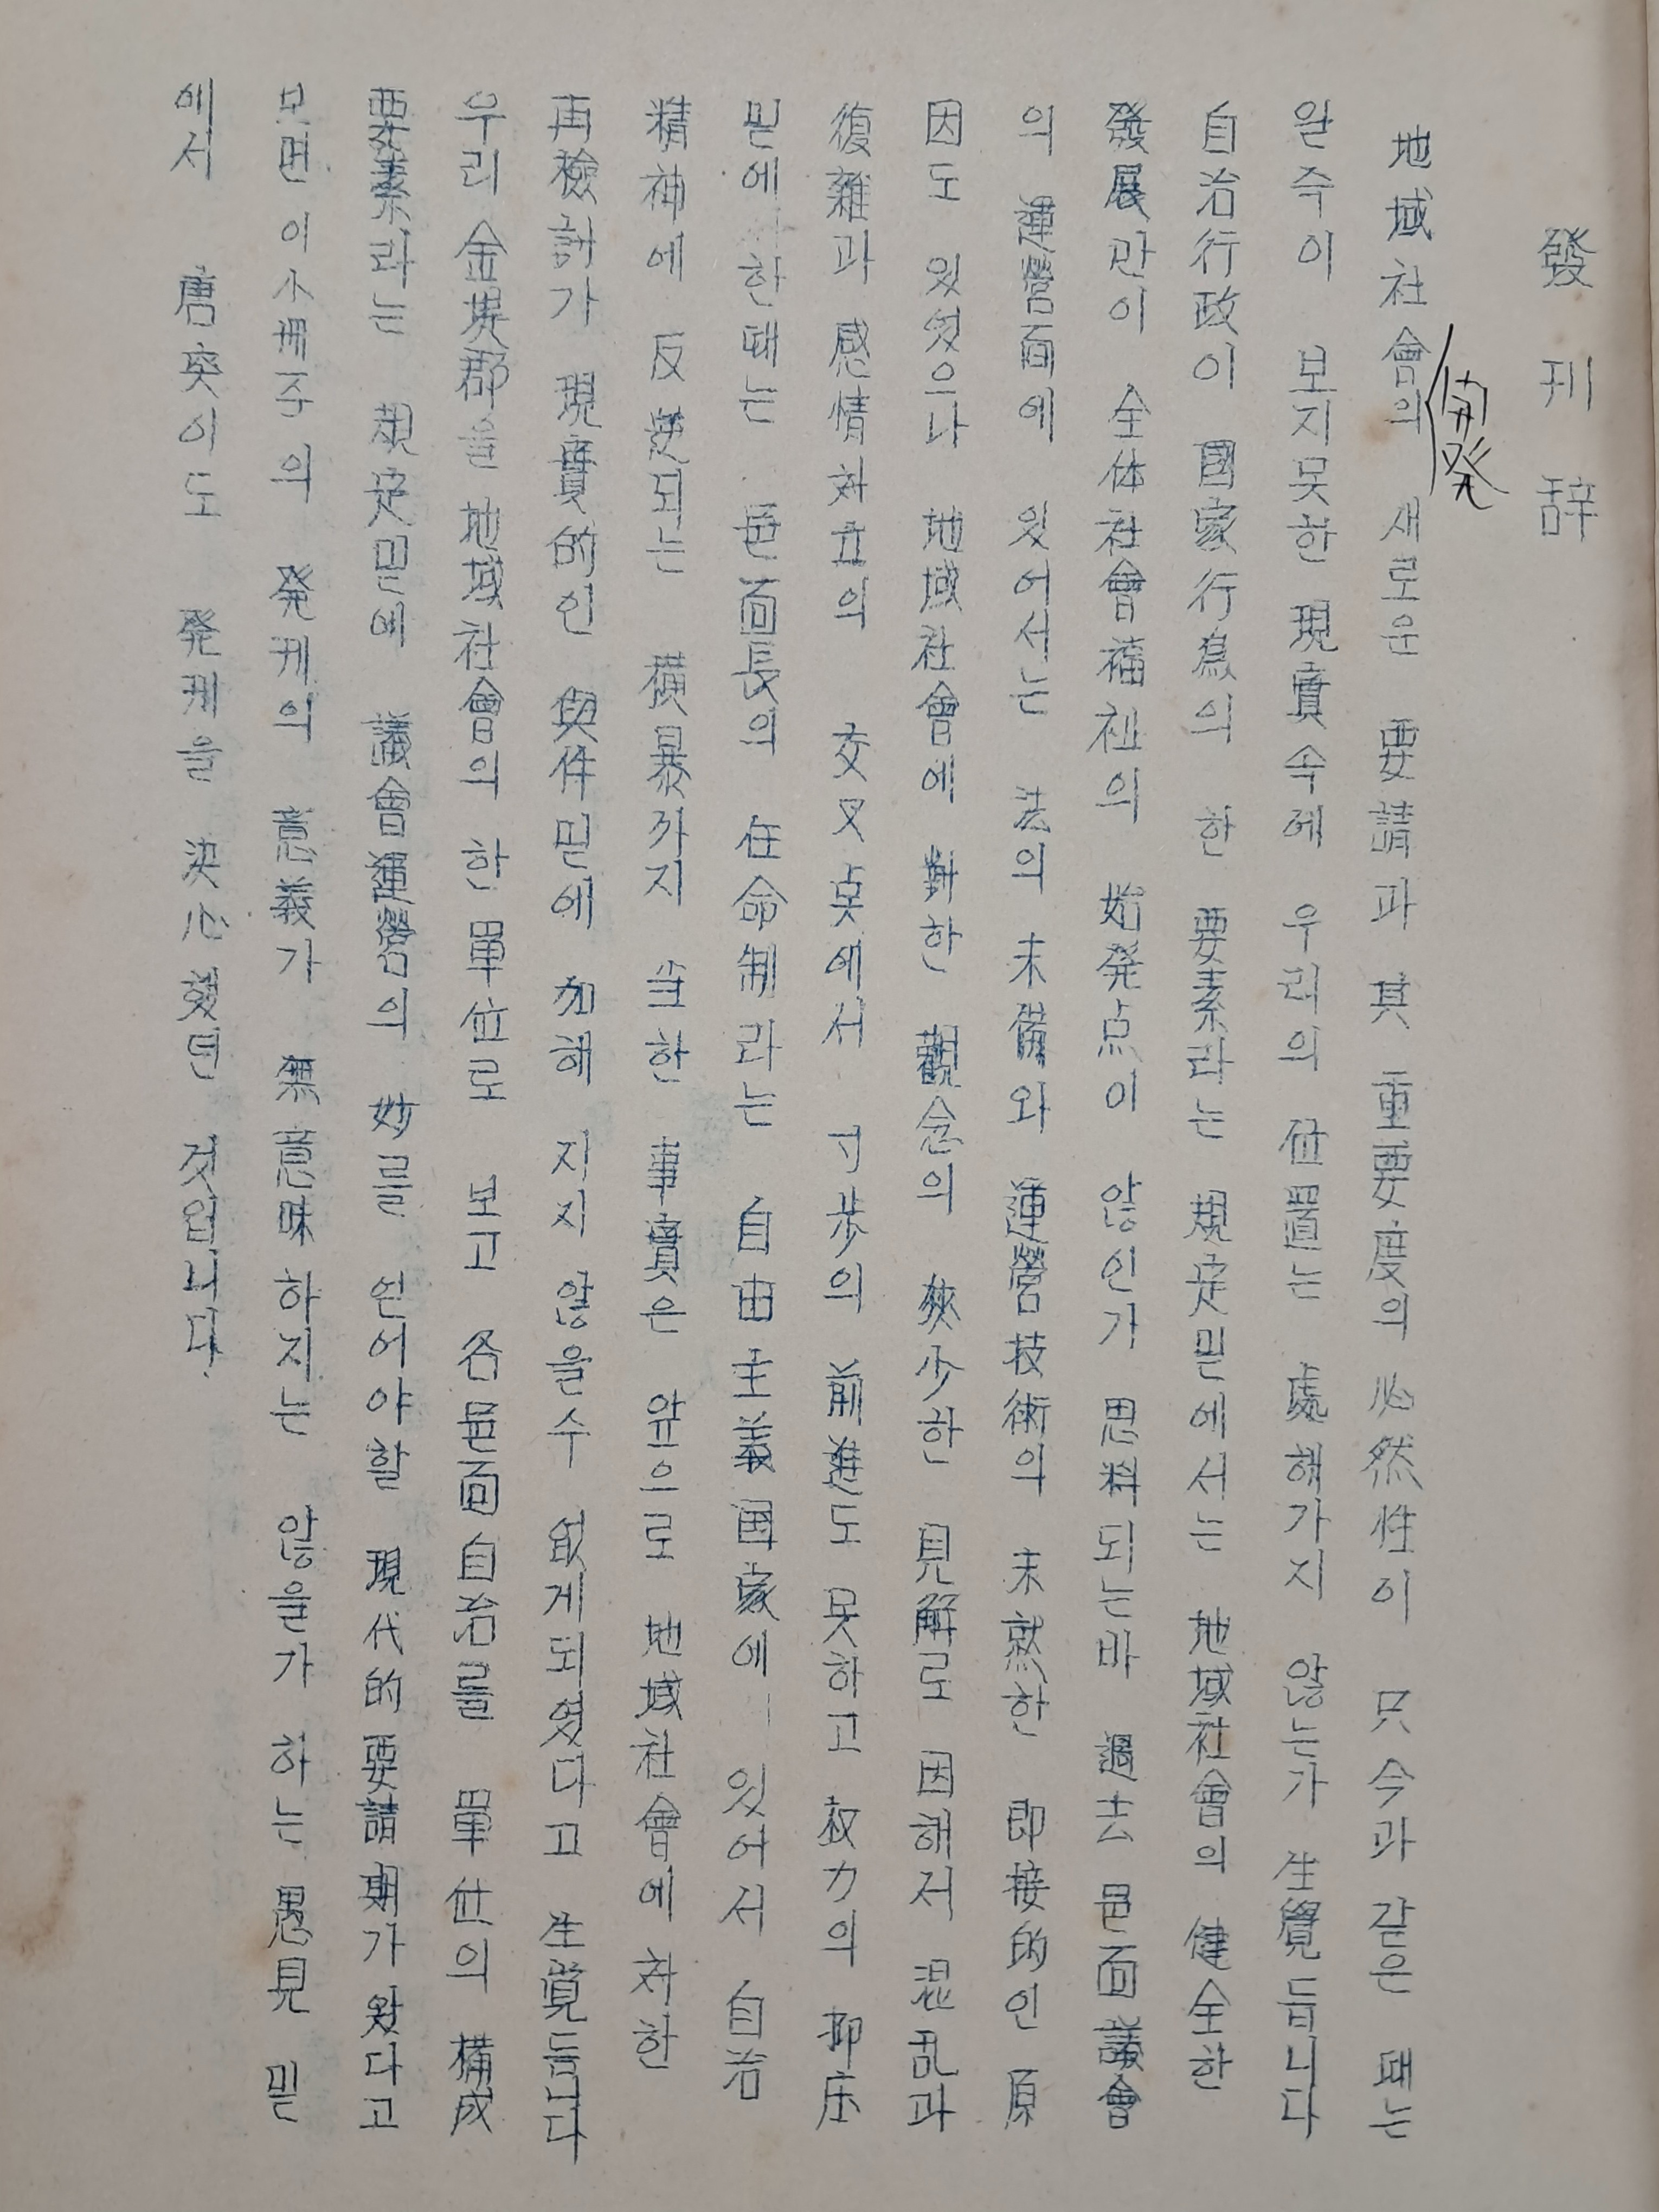 發刊辞
開発
地域社會의 새로운 要請과 其 重要度의 必然性이 只今과 같은 때는
일즉이 보지못한 現實속에 우리의 位置는 處해가지 않는가 生覺듭니다
自治行政이 國家行爲의 한 要素라는 規定밑에서는 地域社會의 健全한
發展만이 全体社會福祉의 始発点이 않인가 思料되는바 過去 邑面議會
의 運營面에 있어서는 法의 未備와 運營技術의 未就한 即接的인 原
因도 있었으나 地域社會에 對한 觀念의 狹少한 見解로 因해서 混乱과
復雜과 感情対立의 交叉点에서 寸步의 前進도 못하고 权力의 抑圧
밑에 한때는 邑面長의 任命制라는 自由主義国家에 있어서 自治
精神에 反逆되는 橫暴까지 当한 事實은 앞으로 地域社會에 対한
再檢討가 現實的인 與件밑에 加해 지지 않을수 없게되였다고 生覚듭니다
우리 金堤郡을 地域社會의 한 單位로 보고 各邑面自治를 單位의 構成
要素라는 規定밑에 議會運營의 妙를 얻어야할 現代的要請期가 왔다고
보면 이 小冊子의 発刊의 意義가 無意味하지는 않을가 하는 愚見 밑
에서 唐突이도 発刊을 決心했던 것입니다.